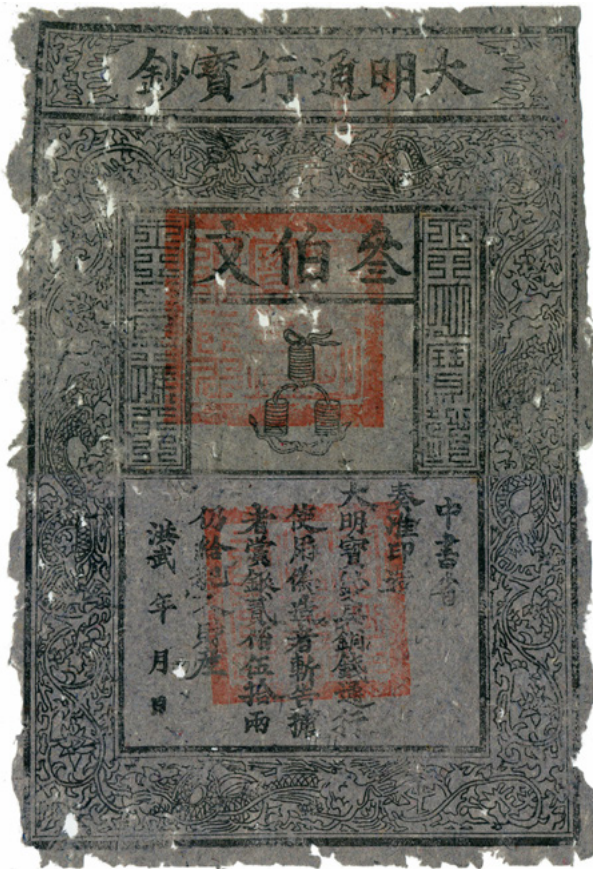 大明通行寶鈔
叁伯文
大明寶鈔
天下通行
中書省
奏准印造
大明寶鈔與銅錢通行
使用僞造者斬告捕
者賞銀貳伯伍拾兩
仍給犯人財產
洪武 年 月 日